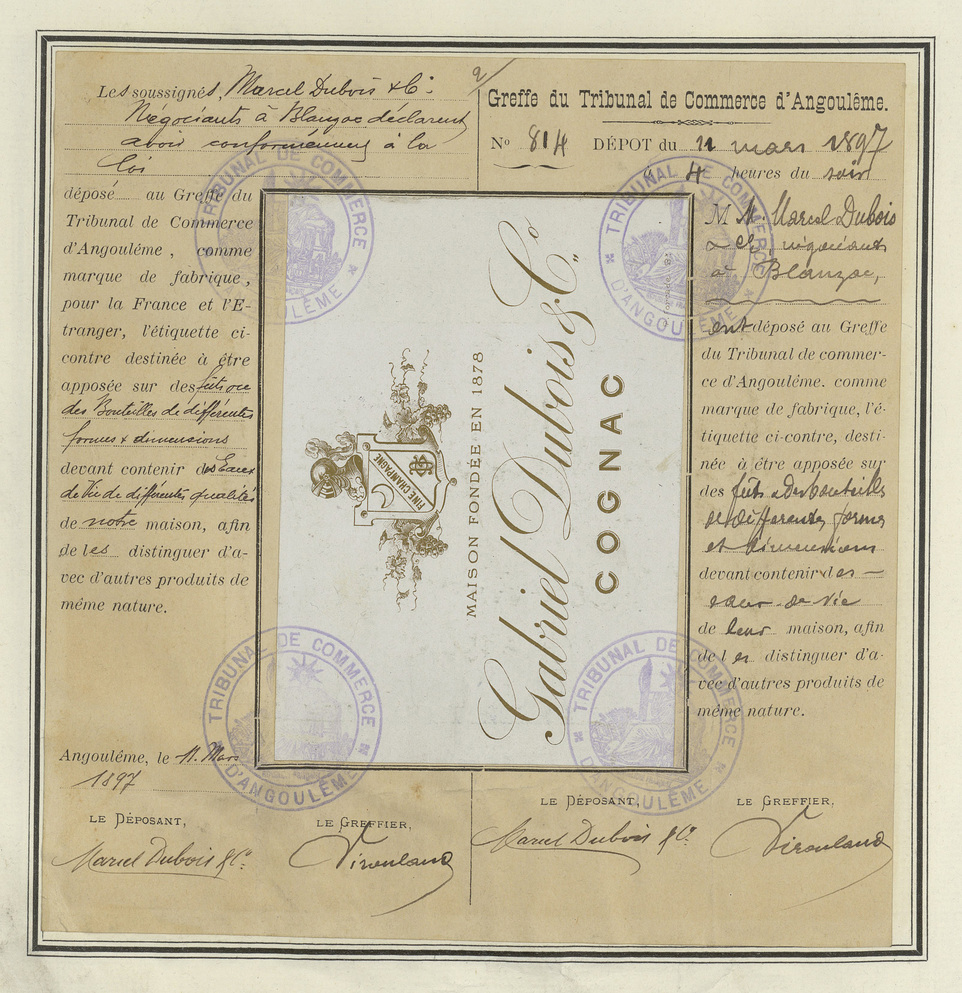 Les soussignés, Marcel Dubois & Cie
Négociants à Blanzac déclarent
avoir conformément à la
loi
déposé au Greffe du
Tribunal de Commerce
d'Angoulême, comme
marque de fabrique,
pour la France et l'E-
tranger, l'étiquette ci-
contre destinée à être
apposée sur des fûts ou
des Bouteilles de différentes
formes & dimensions
devant contenir des Eaux
de Vie de différentes qualités
de notre maison, afin
de les distinguer d'a-
vec d'autres produits de
même nature.
Angoulême, le 11 Mars
1897
LE DÉPOSANT,
Marcel Dubois & Co.
LE GREFFIER,
FINE CHAMPAGNE
MAISON FONDÉE EN 1878
Gabriel Dubois & Co.
COGNAC
Greffe du Tribunal de Commerce d'Angoulême.
No 814 DÉPOT du 11 mars 1897
à 4 heures du soir
M M. Marcel Dubois
& Cie négociants
à Blanzac,
ont déposé au Greffe
du Tribunal de commer-
ce d'Angoulême. comme
marque de fabrique, l'é-
tiquette ci-contre, desti-
née à être apposée sur
des fûts & Des bouteilles
de différentes formes
et dimensions
devant contenir des
eaux de vie
de leur maison, afin
de les distinguer d'a-
vec d'autres produits de
même nature.
LE DÉPOSANT,
Marcel Dubois & Co.
LE GREFFIER,
TRIBUNAL DE COMMERCE
D'ANGOULÊME
TRIBUNAL DE COMMERCE
D'ANGOULÊME
TRIBUNAL DE COMMERCE
D'ANGOULÊME
TRIBUNAL DE COMMERCE
D'ANGOULÊME